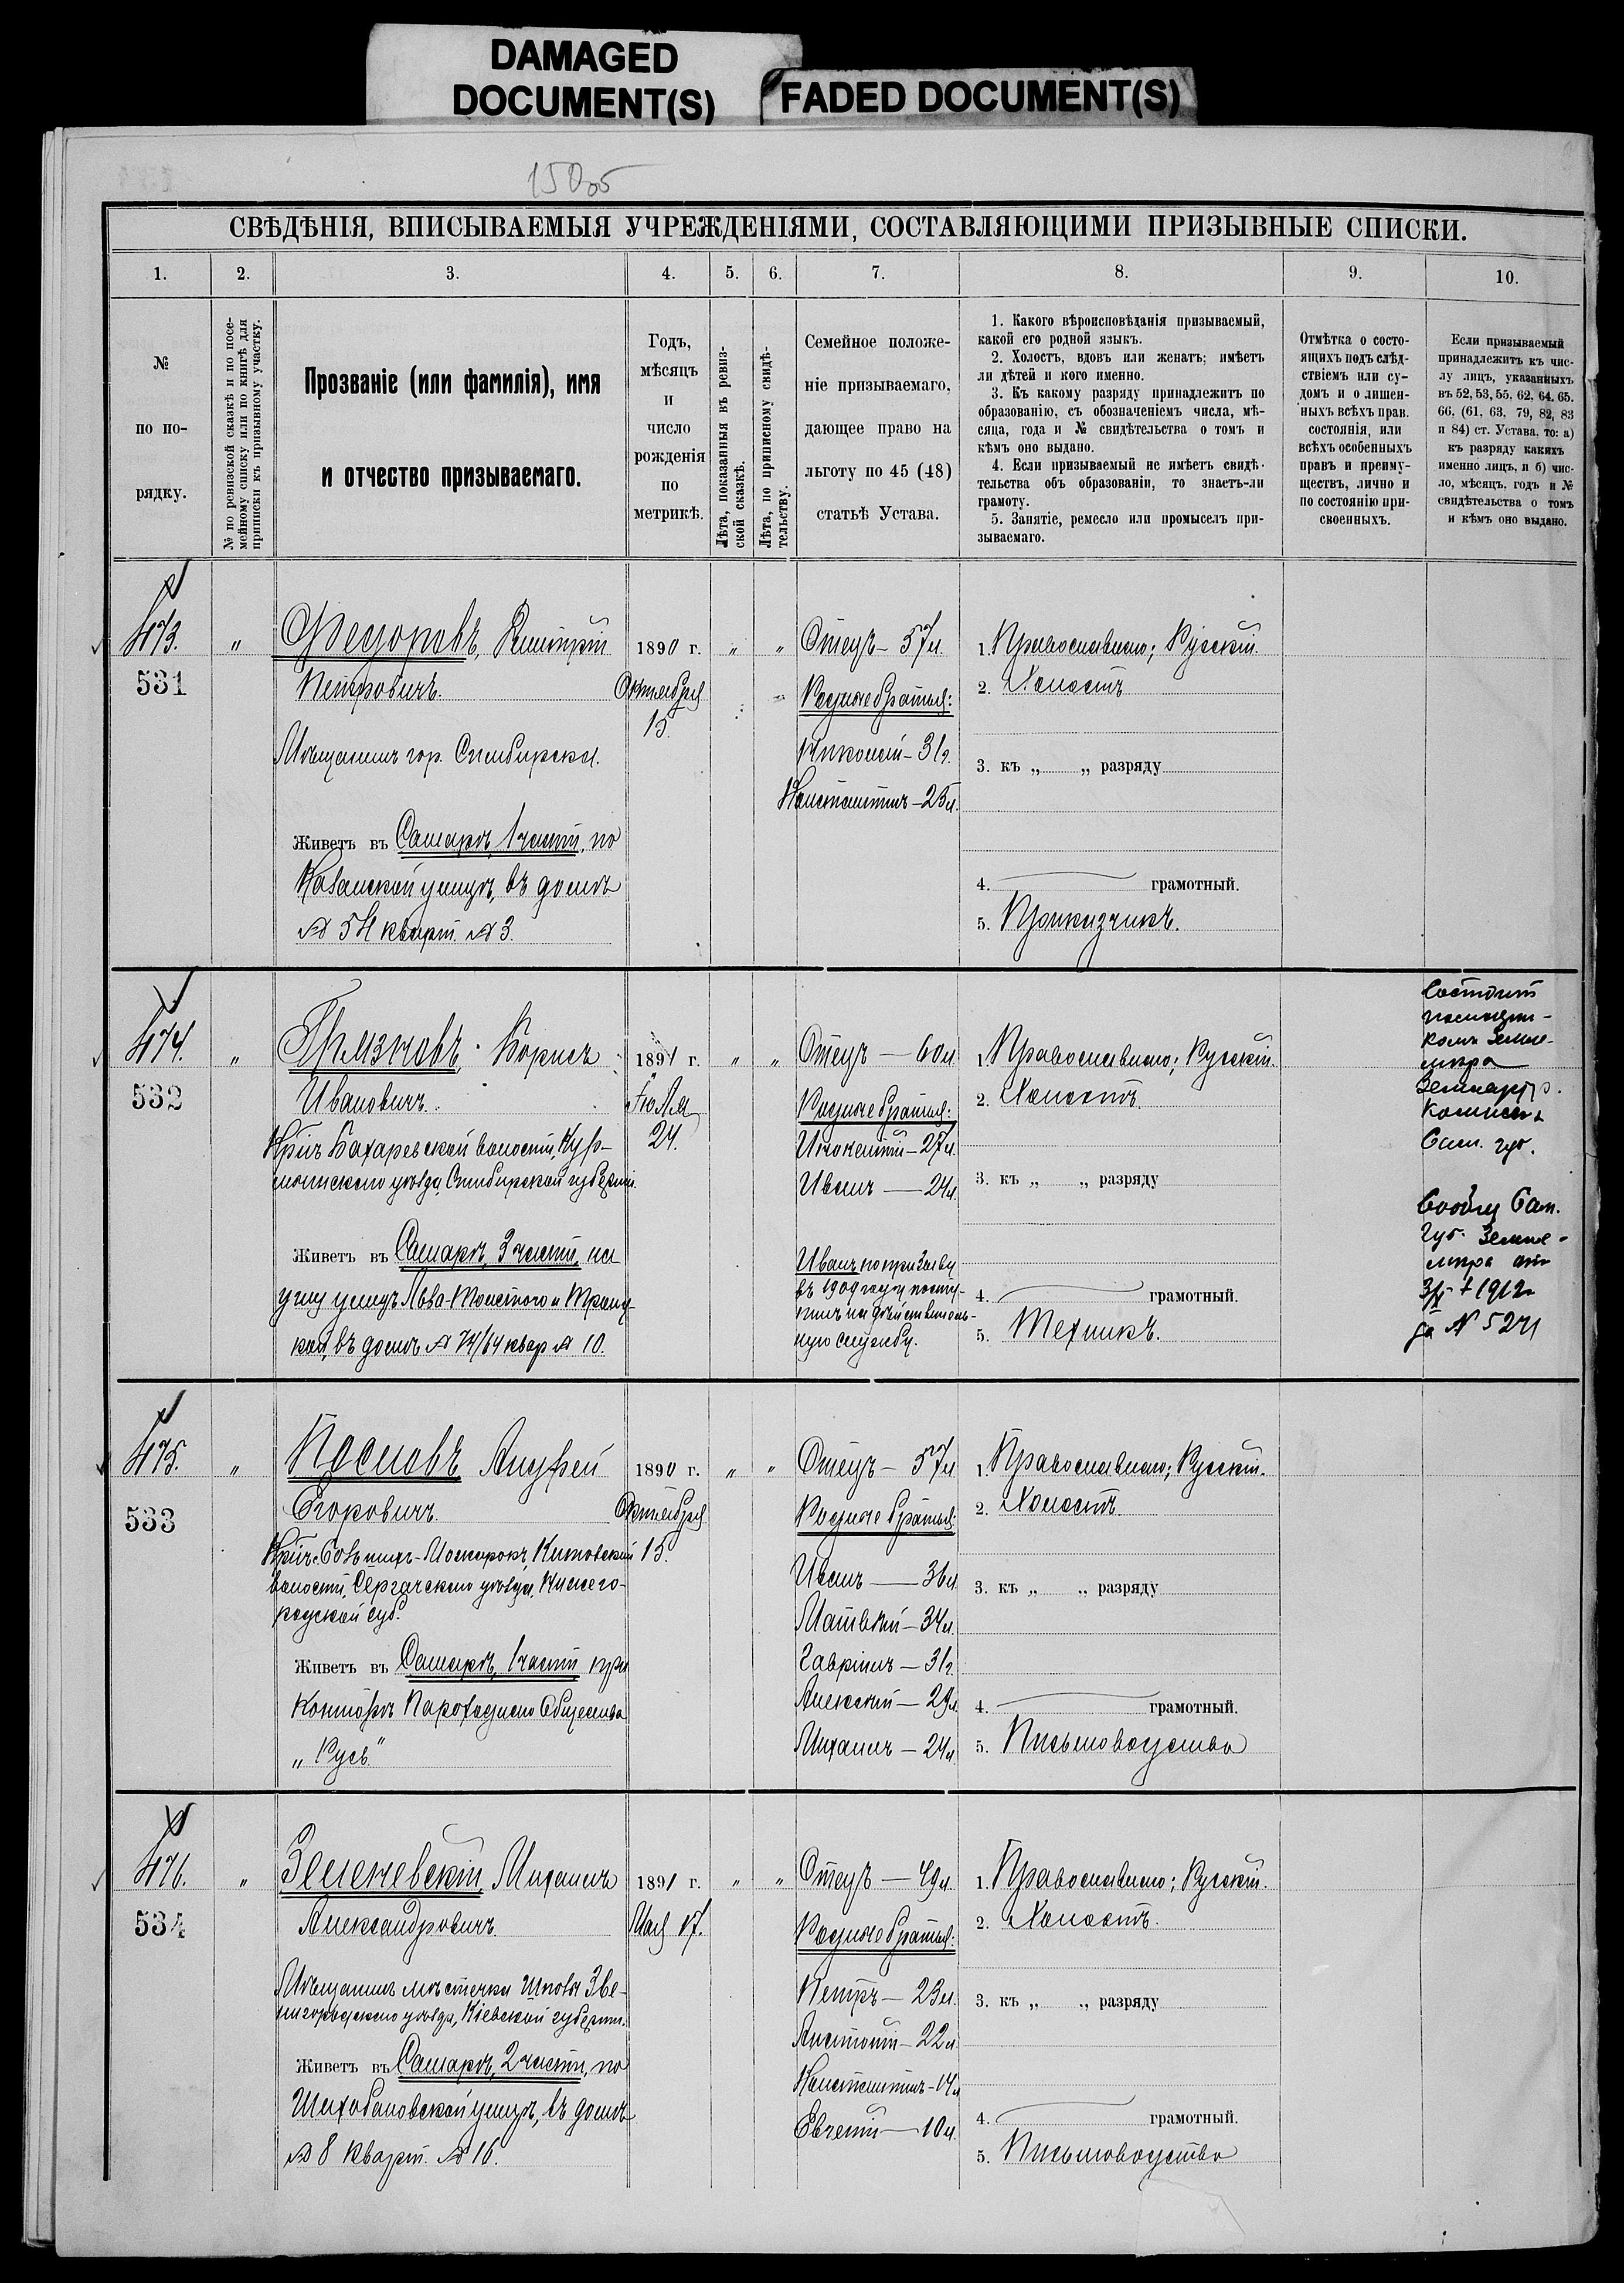 DAMAGED
DOCUMENT(S)
FADED DOCUMENT(S)
СВѢДѢНІЯ, ВПИСЫВАЕМЫЯ УЧРЕЖДЕНІЯМИ, СОСТАВЛЯЮЩИМИ ПРИЗЫВНЫЕ СПИСКИ.
1. 2. 3. 4. 5. 6. 7. 8. 9. 10.
№
по по-
рядку.
№ по ревизской сказкѣ и по посе-
мейному списку или по книгѣ для
приписки къ призывному участку.
Прозваніе (или фамилія), имя
и отчество призываемаго.
Годъ,
мѣсяцъ
и
число
рожденія
по
метрикѣ.
Лѣта, показанныя въ ревиз-
ской сказкѣ.
Лѣта, по приписному свидѣ-
тельству.
Семейное положе-
ніе призываемаго,
дающее право на
льготу по 45 (48)
статьѣ Устава.
1. Какого вѣроисповѣданія призываемый,
какой его родной языкъ.
2. Холостъ, вдовъ или женатъ; имѣетъ
ли дѣтей и кого именно.
3. Къ какому разряду принадлежитъ по
образованію, съ обозначеніемъ числа, мѣ-
сяца, года и № свидѣтельства о томъ и
кѣмъ оно выдано.
4. Если призываемый не имѣетъ свидѣ-
тельства объ образованіи, то знаетъ-ли
грамоту.
5. Занятіе, ремесло или промыселъ при-
зываемаго.
Отмѣтка о состо-
ящихъ подъ слѣд-
ствіемъ или су-
домъ и о лишен-
ныхъ всѣхъ прав.
состоянія, или
всѣхъ особенныхъ
правъ и преиму-
ществъ, лично и
по состоянію при-
своенныхъ.
Если призываемый
принадлежитъ къ чис-
лу лицъ, указанныхъ
въ 52, 53, 55, 62, 64, 65.
66, (61, 63, 79, 82, 83
и 84) ст. Устава, то: а)
къ разряду какихъ
именно лицъ, и б) чис-
ло, мѣсяцъ, годъ и №
свидѣтельства о томъ
и кѣмъ оно выдано.
473.
531
"
Федоровъ, Димитрій
Петровичъ.
Мѣщанинъ гор. Симбирска.
Живетъ въ Самарѣ, 1 части, по
Казанской улицѣ, въ домѣ
№ 54 кварт. № 3.
1890 г.
Октября
15.
" "
Отецъ - 57 л.
Родные братья:
Николай - 31 г.
Константинъ - 25 л.
1. Православнаго; Русскій.
2. Холостъ
3. къ „ „ разряду
4. грамотный.
5. Приказчикъ.
474.
532
"
Грязновъ, Борисъ
Ивановичъ.
Кр-нъ волости, Кур-
мышскаго уѣзда, Симбирской губерніи.
Живетъ въ Самарѣ, 3 части, на
углу улицъ Льва-Толстого и Троиц-
кой, въ домѣ № 74/64 квар № 10.
1891 г.
Іюля
24.
" "
Отецъ — 60 л.
Родные братья:
Иннокентій - 27 л.
Иванъ — 24 л.
Иванъ по призыву
въ 1909 году посту-
пилъ на дѣйствитель-
ную службу.
1. Православнаго; Русскій.
2. Холостъ.
3. къ „ „ разряду
4. грамотный.
5. Техникъ.
Состоитъ
помощни-
комъ Земле-
мѣра
Комиссіи
Сам. губ.
Сообщ. Сам.
Губ. Земле-
мѣра отъ
1912 г.
за № 5241
475.
533
"
Послов Андрей
Егоровичъ.
волости, Сергачскаго уѣзда, Нижего-
родской губ.
Живетъ въ Самарѣ, 1 части при
Конторѣ Пароходнаго Общества
„Русь"
1890 г.
Октября
15.
" "
Отецъ - 57 л.
Родные братья:
Иванъ — 36 л.
Матвѣй - 34 л.
Гавріилъ - 31 г.
Алексѣй - 29 л.
Михаилъ - 24 л.
1. Православнаго; Русскій.
2. Холостъ.
3. къ „ „ разряду
4. грамотный.
5. Письмоводство
476.
534
"
Зеленевскій, Михаилъ
Александровичъ.
Мѣщанинъ мѣстечка Шполы Зве-
нигородскаго уѣзда, Кіевской губерніи.
Живетъ въ Самарѣ, 2 части, по
Шихобаловской улицѣ, въ домѣ
№ 8 кварт. № 16.
1891 г.
Мая 17.
" "
Отецъ — 49 л.
Родные братья:
Петръ - 23 л.
Анатолій - 22 л.
Константинъ - 14 л
Евгеній — 10 л.
1. Православнаго; Русскій.
2. Холостъ.
3. къ „ „ разряду
4. грамотный.
5. Письмоводство